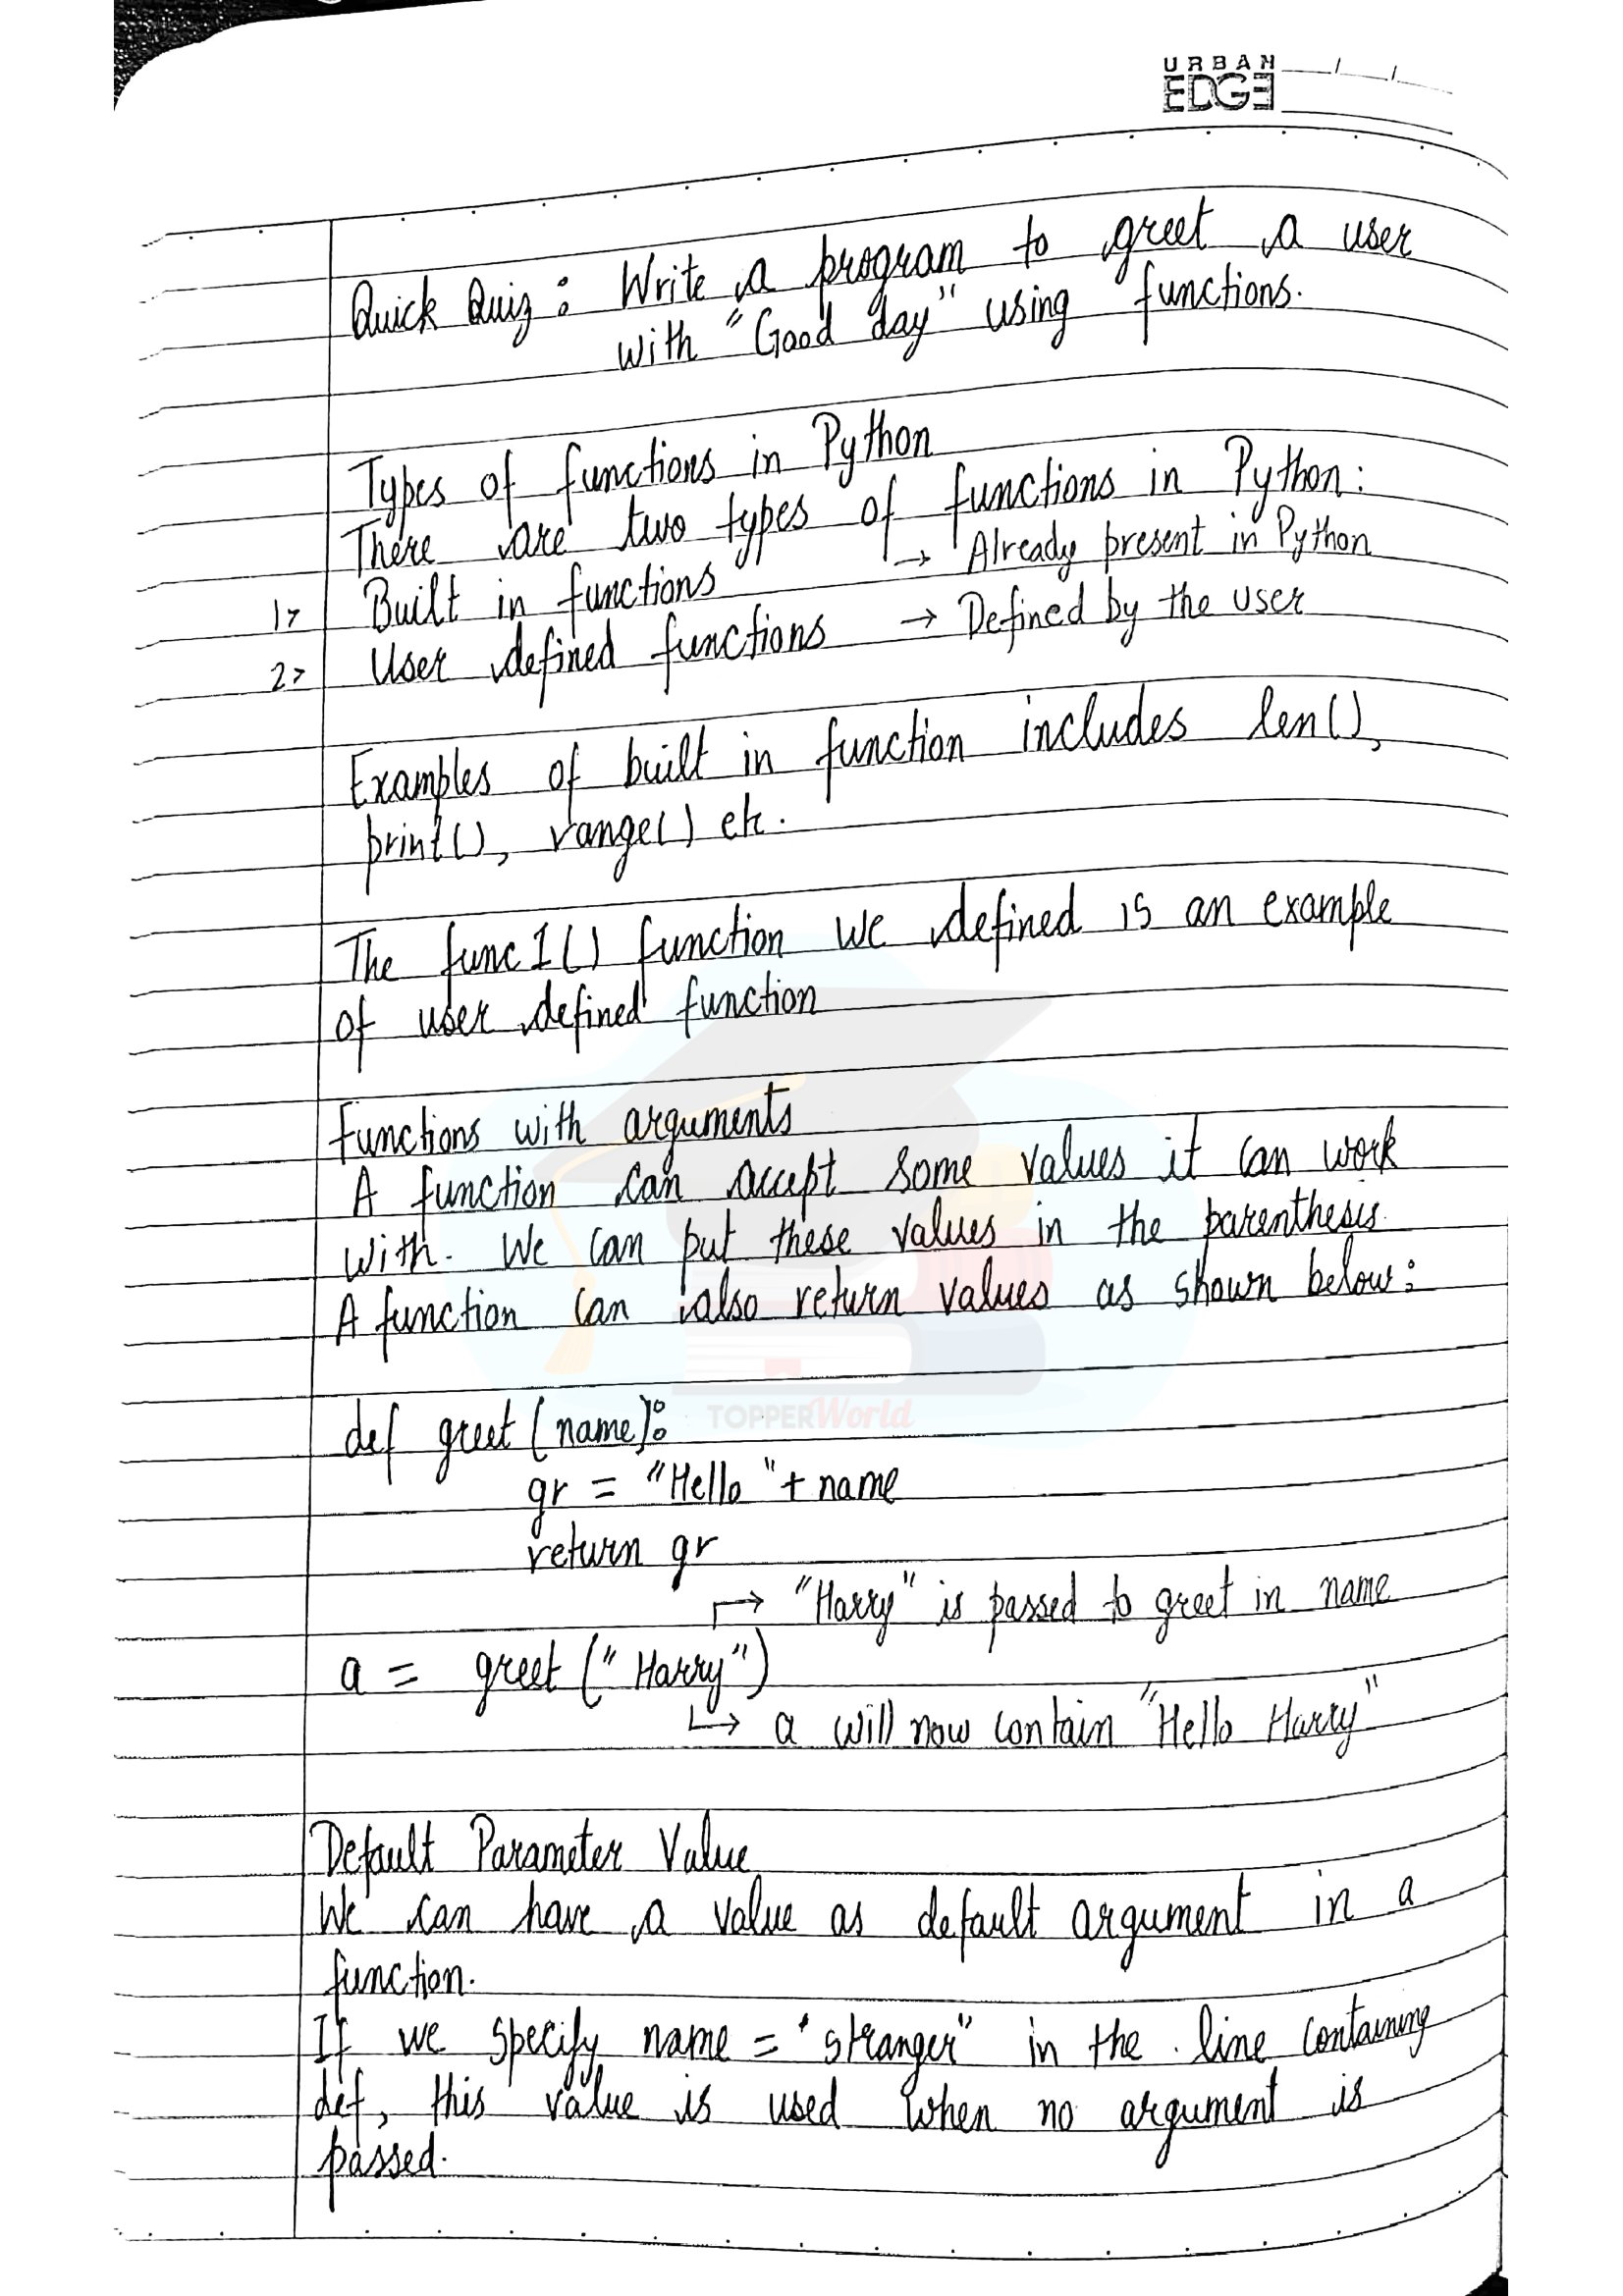 URBAN
EDGE
Quick Quiz : Write a program to greet a user
with "Good day" using functions.
Types of functions in Python
There are two types of functions in Python:
1> Built in functions → Already present in Python
2> User defined functions → Defined by the user
Examples of built in function includes len(),
print(), range() etc.
The func1() function we defined is an example
of user defined function
Functions with arguments
A function can accept some values it can work
with. We can put these values in the parenthesis.
A function can also return values as shown below:
def greet (name):
gr = "Hello "+ name
return gr
→ "Harry" is passed to greet in name
a = greet ("Harry")
→ a will now contain "Hello Harry"
Default Parameter Value
We can have a value as default argument in a
function.
If we specify name = "stranger" in the line containing
def, this value is used when no argument is
passed.
TOPPERWorld